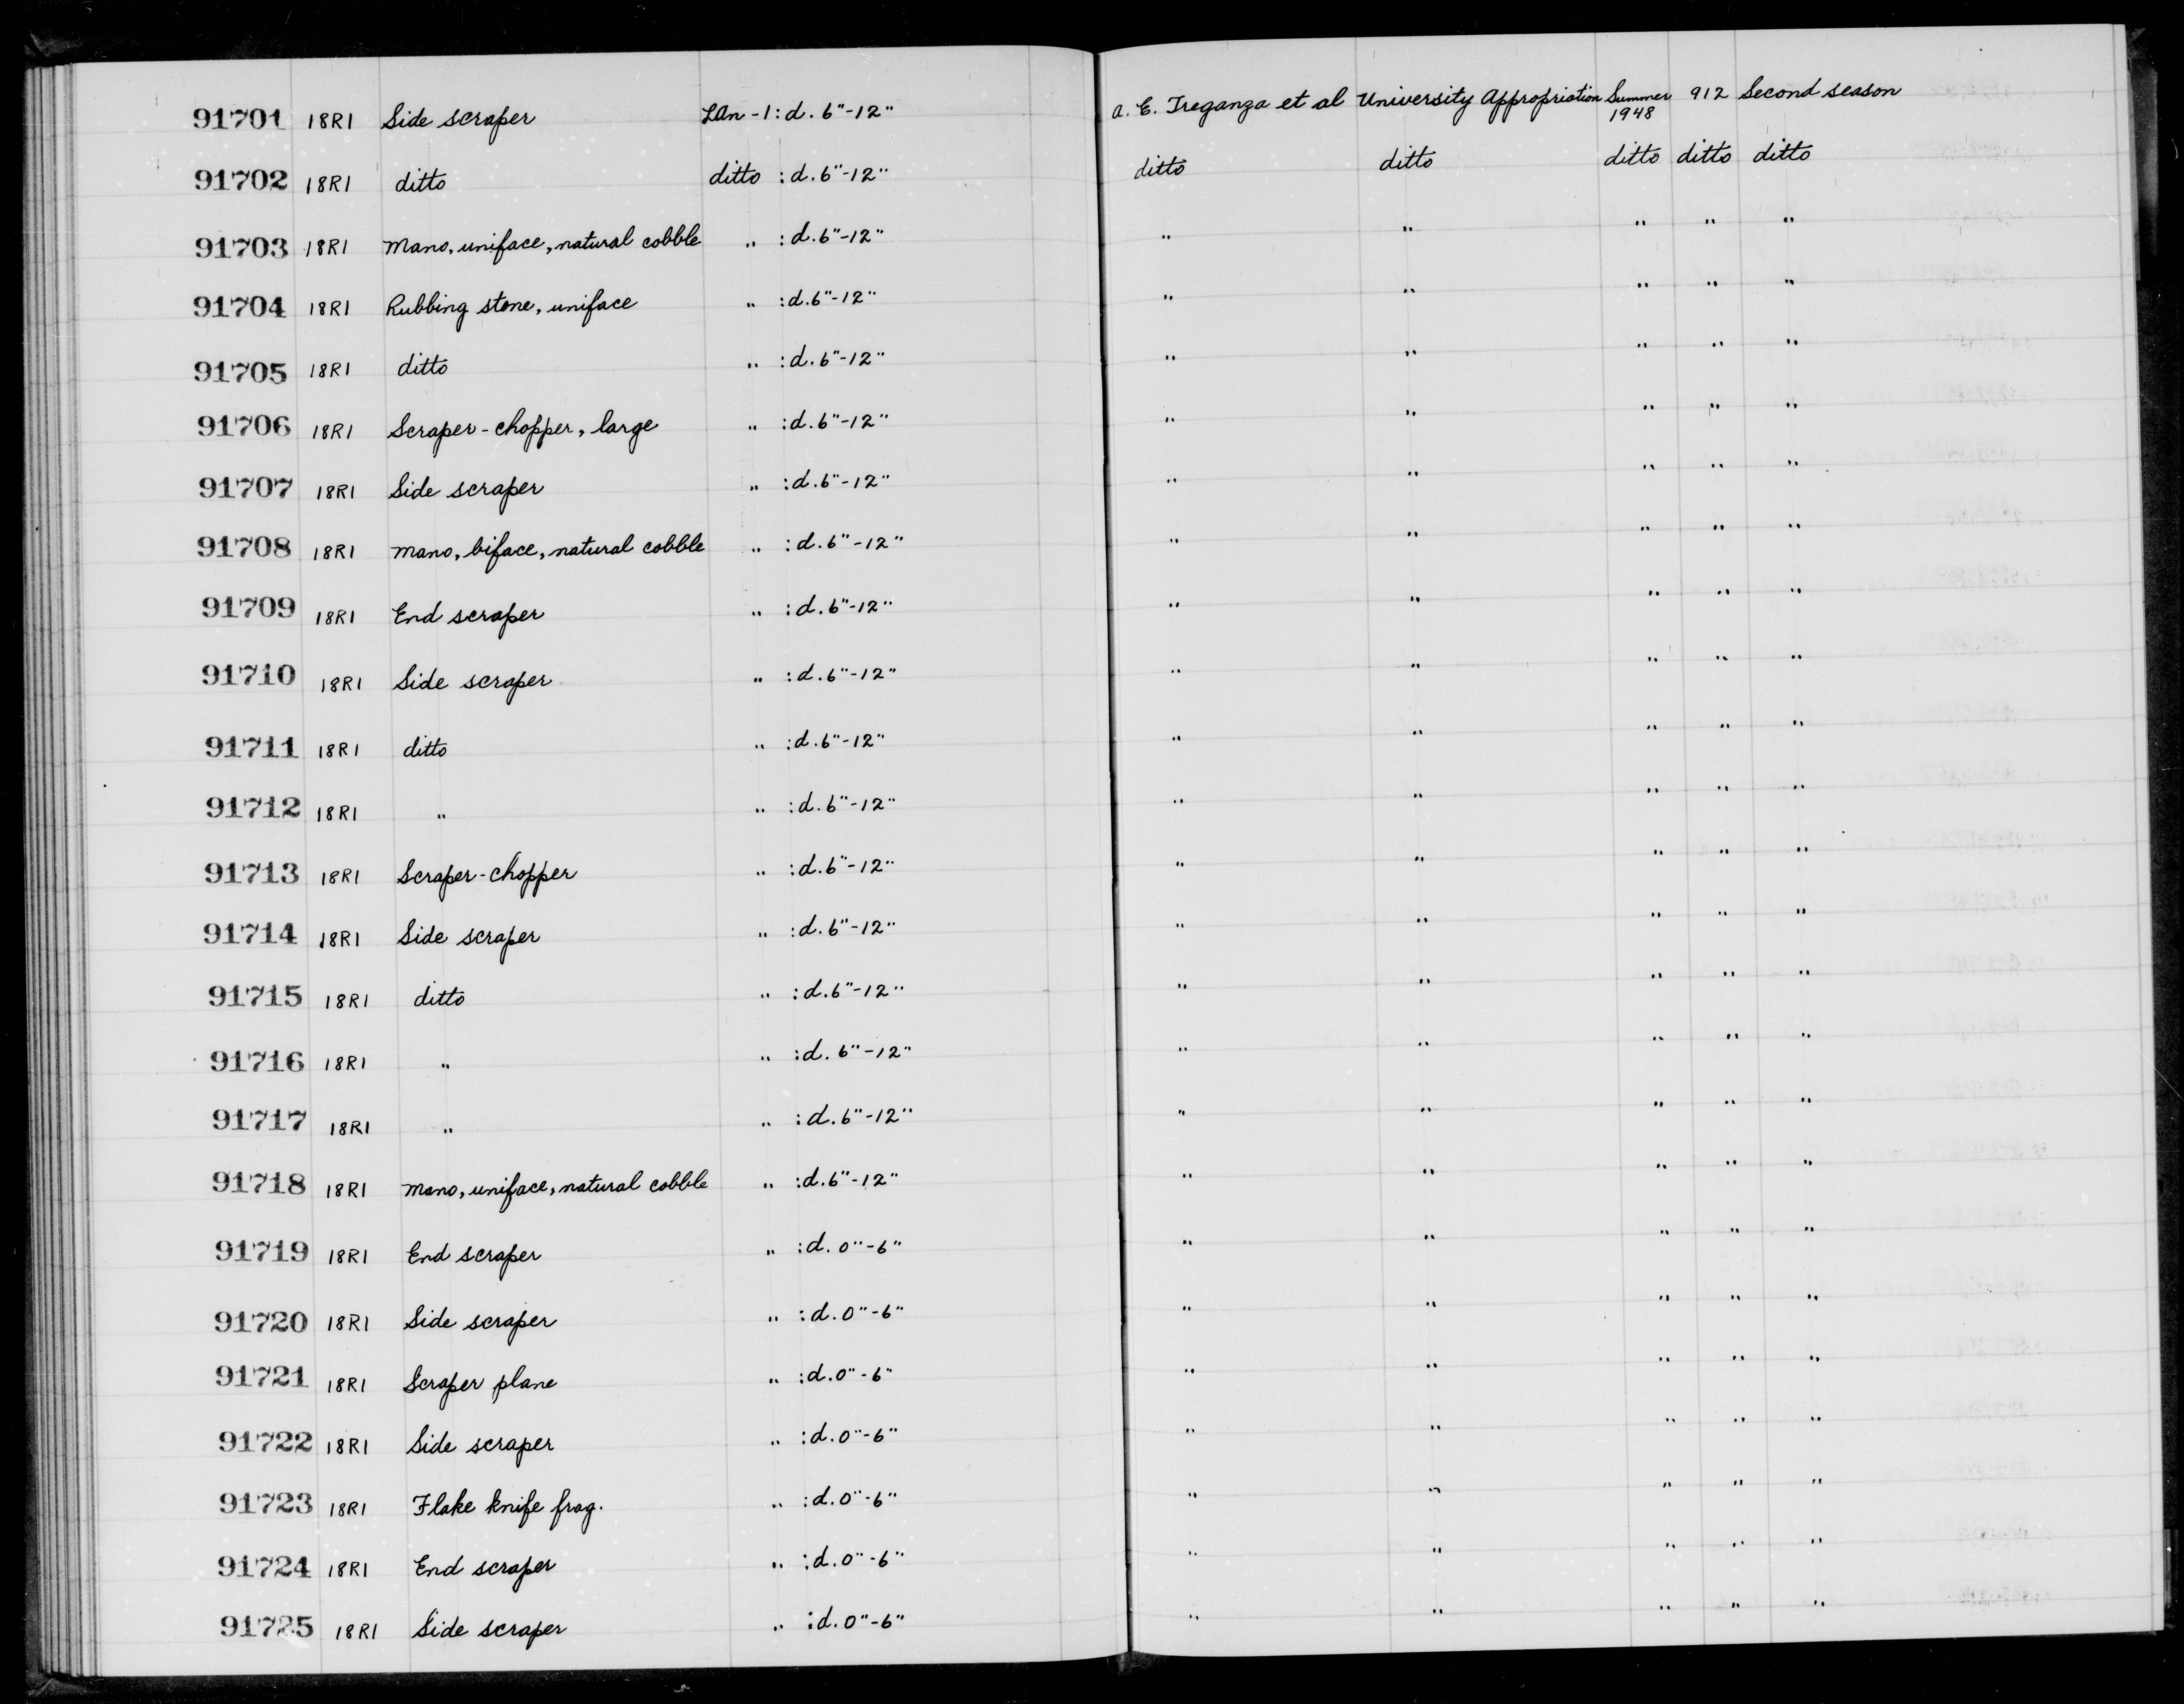 91701 18R1 Side scraper LAn-1: d. 6"-12" A. E. Treganza et al University Appropriation Summer 1948 912 Second season
91702 18R1 ditto ditto : d. 6"-12" ditto ditto ditto ditto ditto
91703 18R1 Mano, uniface, natural cobble " : d. 6"-12" " " " " "
91704 18R1 Rubbing stone, uniface " : d. 6"-12" " " " " "
91705 18R1 ditto " : d. 6"-12" " " " " "
91706 18R1 Scraper-chopper, large " : d. 6"-12" " " " " "
91707 18R1 Side scraper " : d. 6"-12" " " " " "
91708 18R1 Mano, biface, natural cobble " : d. 6"-12" " " " " "
91709 18R1 End scraper " : d. 6"-12" " " " " "
91710 18R1 Side scraper " : d. 6"-12" " " " " "
91711 18R1 ditto " : d. 6"-12" " " " " "
91712 18R1 " " : d. 6"-12" " " " " "
91713 18R1 Scraper-chopper " : d. 6"-12" " " " " "
91714 18R1 Side scraper " : d. 6"-12" " " " " "
91715 18R1 ditto " : d. 6"-12" " " " " "
91716 18R1 " " : d. 6"-12" " " " " "
91717 18R1 " " : d. 6"-12" " " " " "
91718 18R1 Mano, uniface, natural cobble " : d. 6"-12" " " " " "
91719 18R1 End scraper " : d. 0"-6" " " " " "
91720 18R1 Side scraper " : d. 0"-6" " " " " "
91721 18R1 Scraper plane " : d. 0"-6" " " " " "
91722 18R1 Side scraper " : d. 0"-6" " " " " "
91723 18R1 Flake knife frag. " : d. 0"-6" " " " " "
91724 18R1 End scraper " : d. 0"-6" " " " " "
91725 18R1 Side scraper " : d. 0"-6" " " " " "